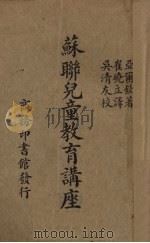 亞爾欽著
崔曉立譯
吳清友校
蘇聯兒童教育講座
商務印書館發行